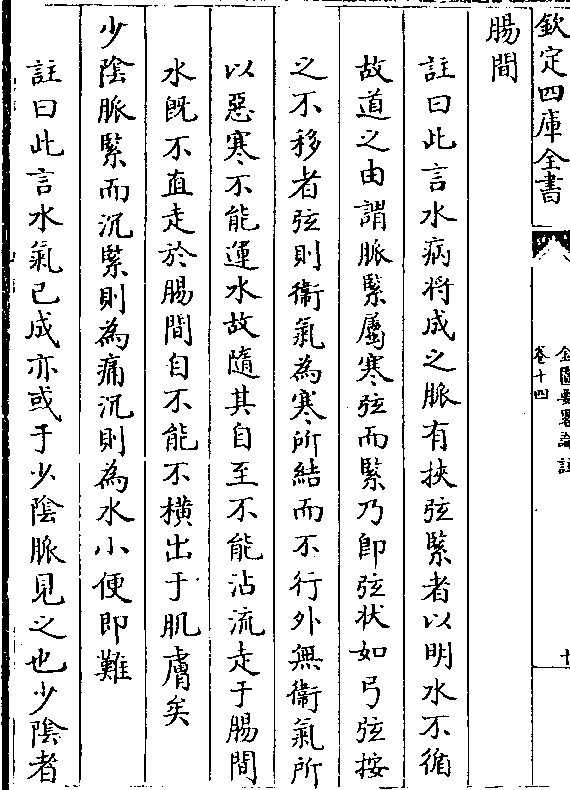 欽定四庫全書
金匱要略論註
卷十四
腸間
註曰此言水病將成之脈有挾弦緊者以明水不循
故道之由謂脈緊屬寒弦而緊乃即弦狀如弓弦按
之不移者弦則衛氣為寒所結而不行外無衛氣所
以惡寒不能運水故隨其自至不能沾流走于腸間
水既不直走於腸間自不能不橫出于肌膚矣
少陰脈緊而沉緊則為痛沉則為水小便即難
註曰此言水氣已成亦或于少陰脈見之也少陰者